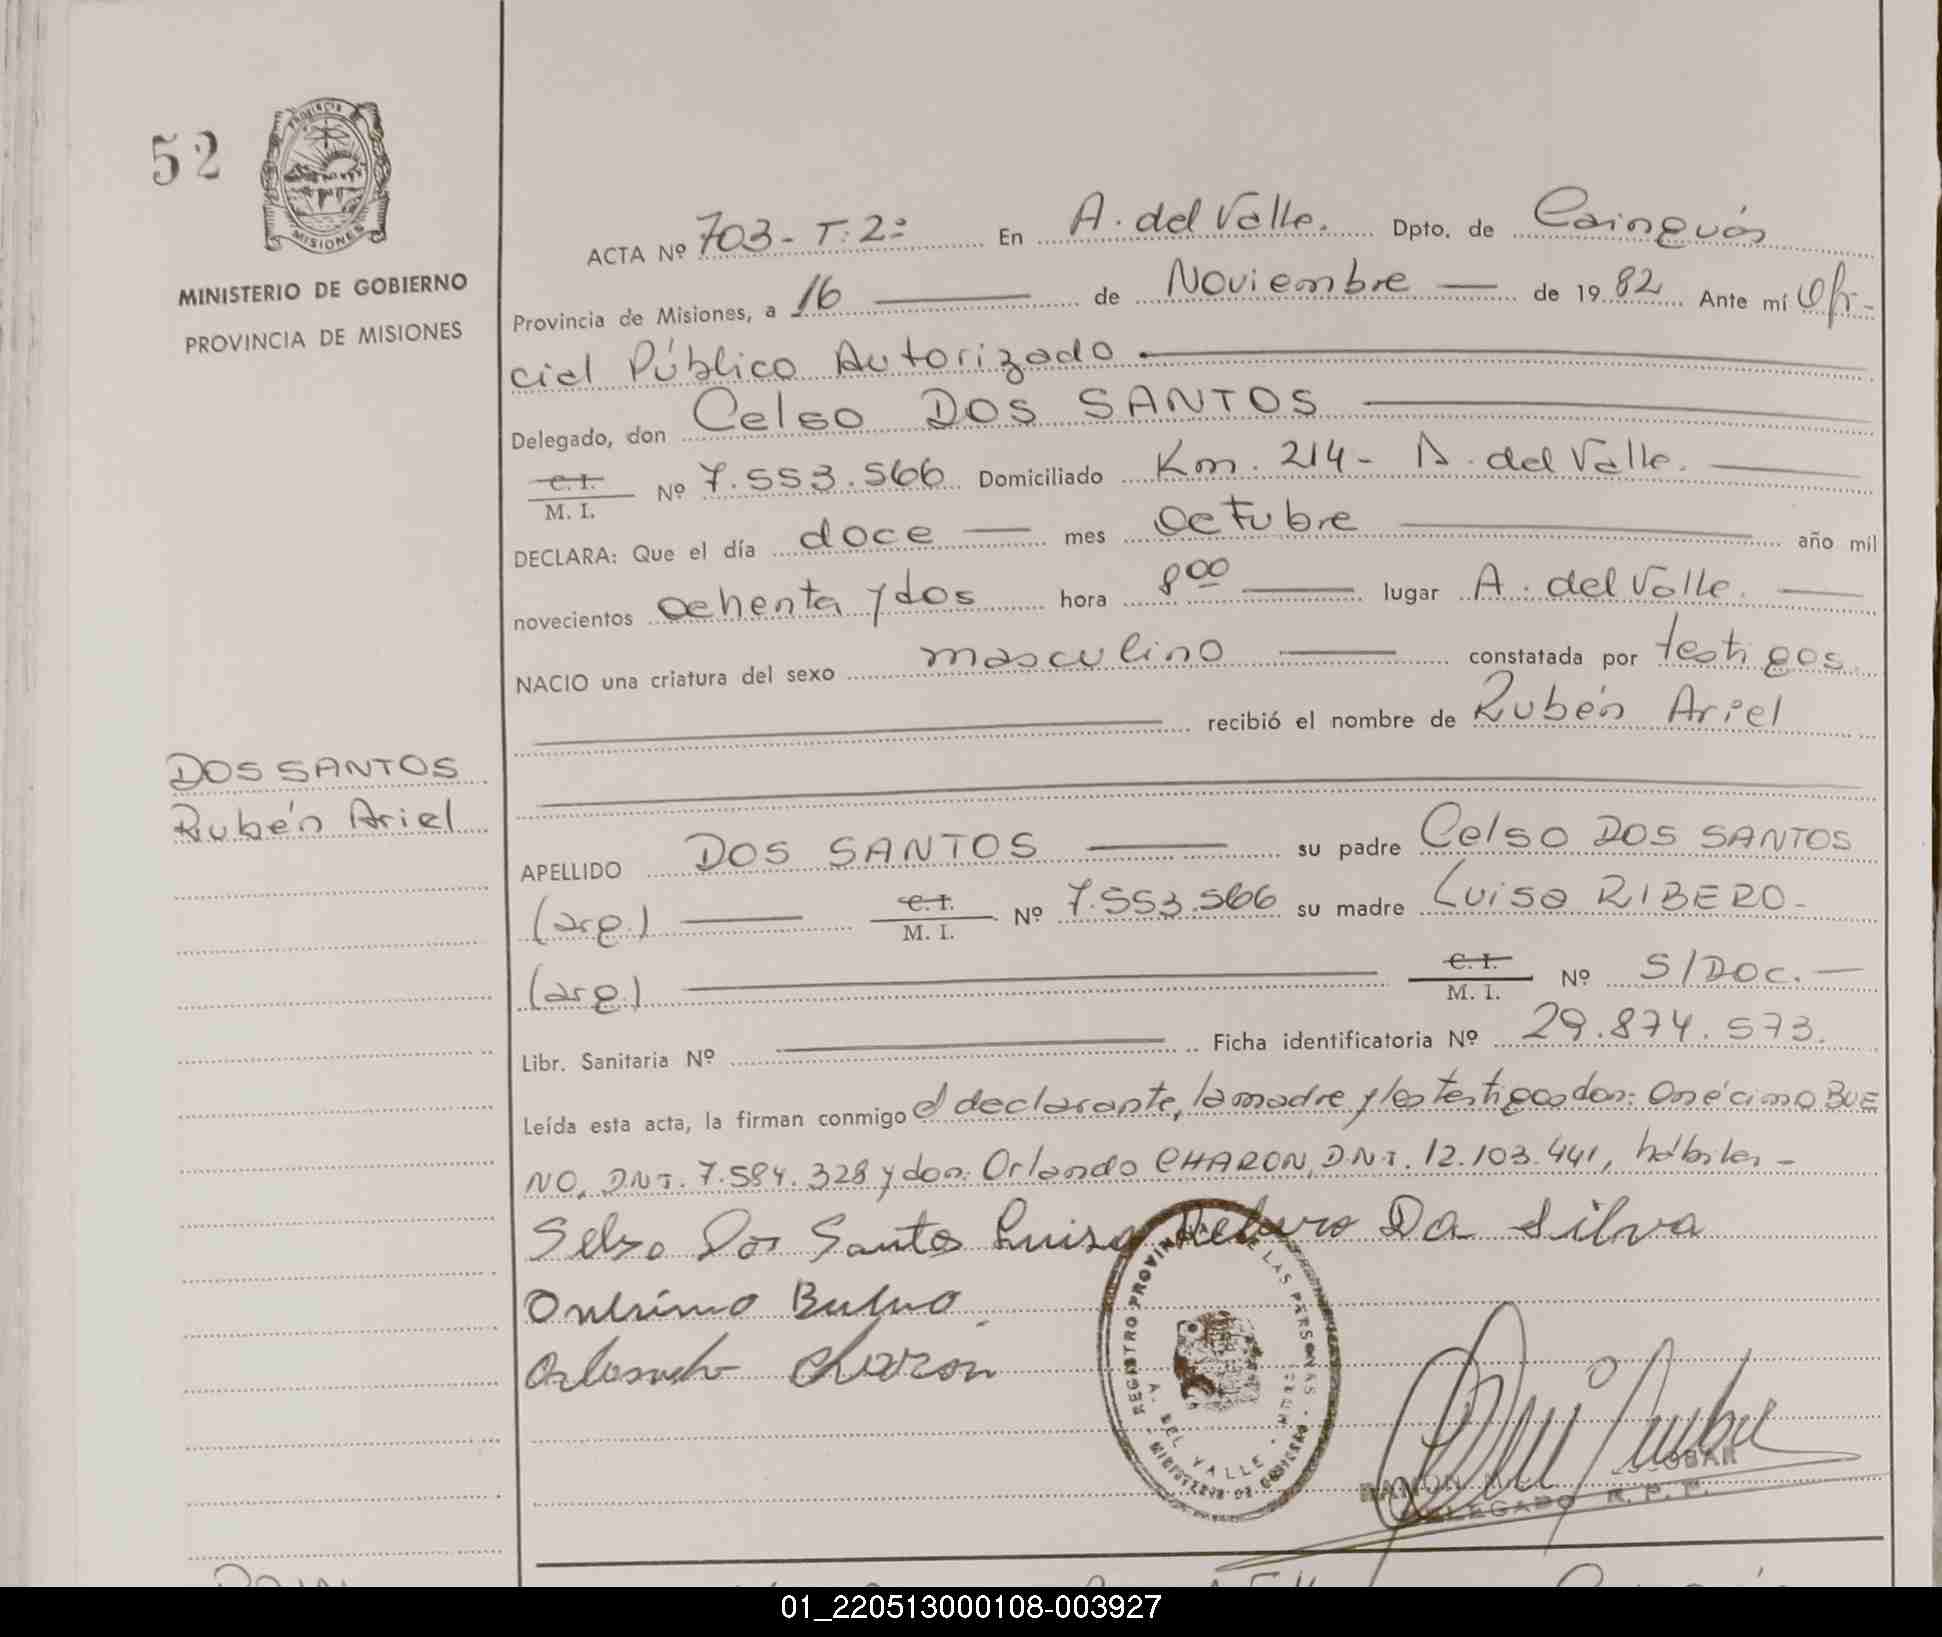 52
PROVINCIA
MISIONES
MINISTERIO DE GOBIERNO
PROVINCIA DE MISIONES
ACTA Nº 703 - T: 2º En A. del Valle. Dpto. de Cainguás
Provincia de Misiones, a 16 de Noviembre de 1982 Ante mí Ofi-
cial Público Autorizado
Delegado, don Celso DOS SANTOS
C. I.
M. I. Nº 7.553.566 Domiciliado Km. 214 - A. del Valle.
DECLARA: Que el día doce mes octubre año mil
novecientos ochenta y dos hora 8 00 lugar A. del Valle.
NACIO una criatura del sexo masculino constatada por testigos
recibió el nombre de Rubén Ariel
DOS SANTOS
Rubén Ariel
APELLIDO DOS SANTOS su padre Celso DOS SANTOS
(arg.) C. I.
M. I. Nº 7.553.566 su madre Luisa RIBERO -
(arg.) C. I.
M. I. Nº S/DOC.
Libr. Sanitaria Nº Ficha identificatoria Nº 29.874.573.
Leída esta acta, la firman conmigo el declarante, la madre y los testigos don: Onécimo BUE
NO, D.N.I. 7.584.328 y don: Orlando CHARON, D.N.I. 12.103.441, hábiles -
Selso Dos Santos Luisa Da Silva
Onesimo Bueno
Orlando Charon
REGISTRO PROVINCIAL DE LAS PERSONAS
A. DEL VALLE
MINISTERIO DE GOBIERNO
RAMON ESCOBAR
DELEGADO R. P. P.
01_220513000108-003927